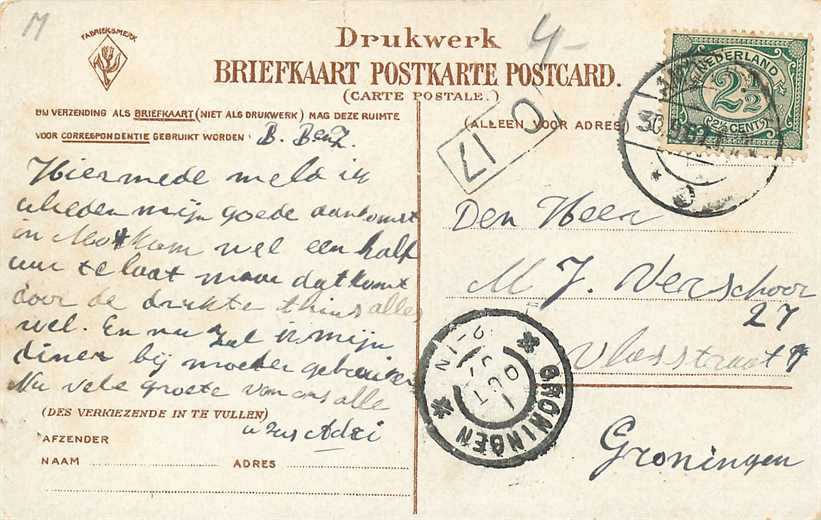 M
4-
FABRIEKSMERK
Drukwerk
BRIEFKAART POSTKARTE POSTCARD.
(CARTE POSTALE.)
BIJ VERZENDING ALS BRIEFKAART (NIET ALS DRUKWERK) MAG DEZE RUIMTE
VOOR CORRESPONDENTIE GEBRUIKT WORDEN
(ALLEEN VOOR ADRES)
NEDERLAND
2½
2½ CENT
B. Benz.
Hiermede meld ik
uheden mijn goede aankomst
in wel een half
uur te laat maar dat komt
door de drukte thuis alles
wel. En nu zal ik mijn
diner bij moeder gebruiken
Nu vele groete van ons alle
u zus
Den Heer
M J. Verschoor
27
Vlasstraat
Groningen
GRONINGEN
(DES VERKIEZENDE IN TE VULLEN)
AFZENDER
NAAM ADRES